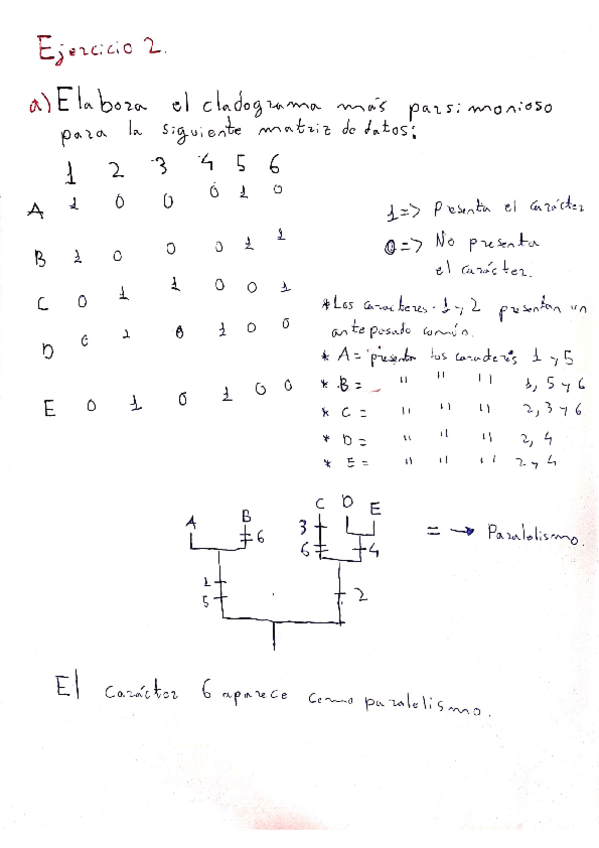 Ejercicio 2.
a) Elabora el cladograma más parsimonioso
para la siguiente matriz de datos:
1 2 3 4 5 6
A 1 0 0 0 1 0
B 1 0 0 0 1 1
C 0 1 1 0 0 1
D 0 1 0 1 0 0
E 0 1 0 1 0 0
1 => Presenta el carácter
0 => No presenta
el carácter.
* Los caracteres 1 y 2 presentan un
antepasado común.
* A = presenta los caracteres 1 y 5
* B = " " " 1, 5 y 6
* C = " " " 2, 3 y 6
* D = " " " 2, 4
* E = " " " 2 y 4
A B C D E
6 3 6 4
1 5 2
= → Paralelismo.
El carácter 6 aparece como paralelismo.